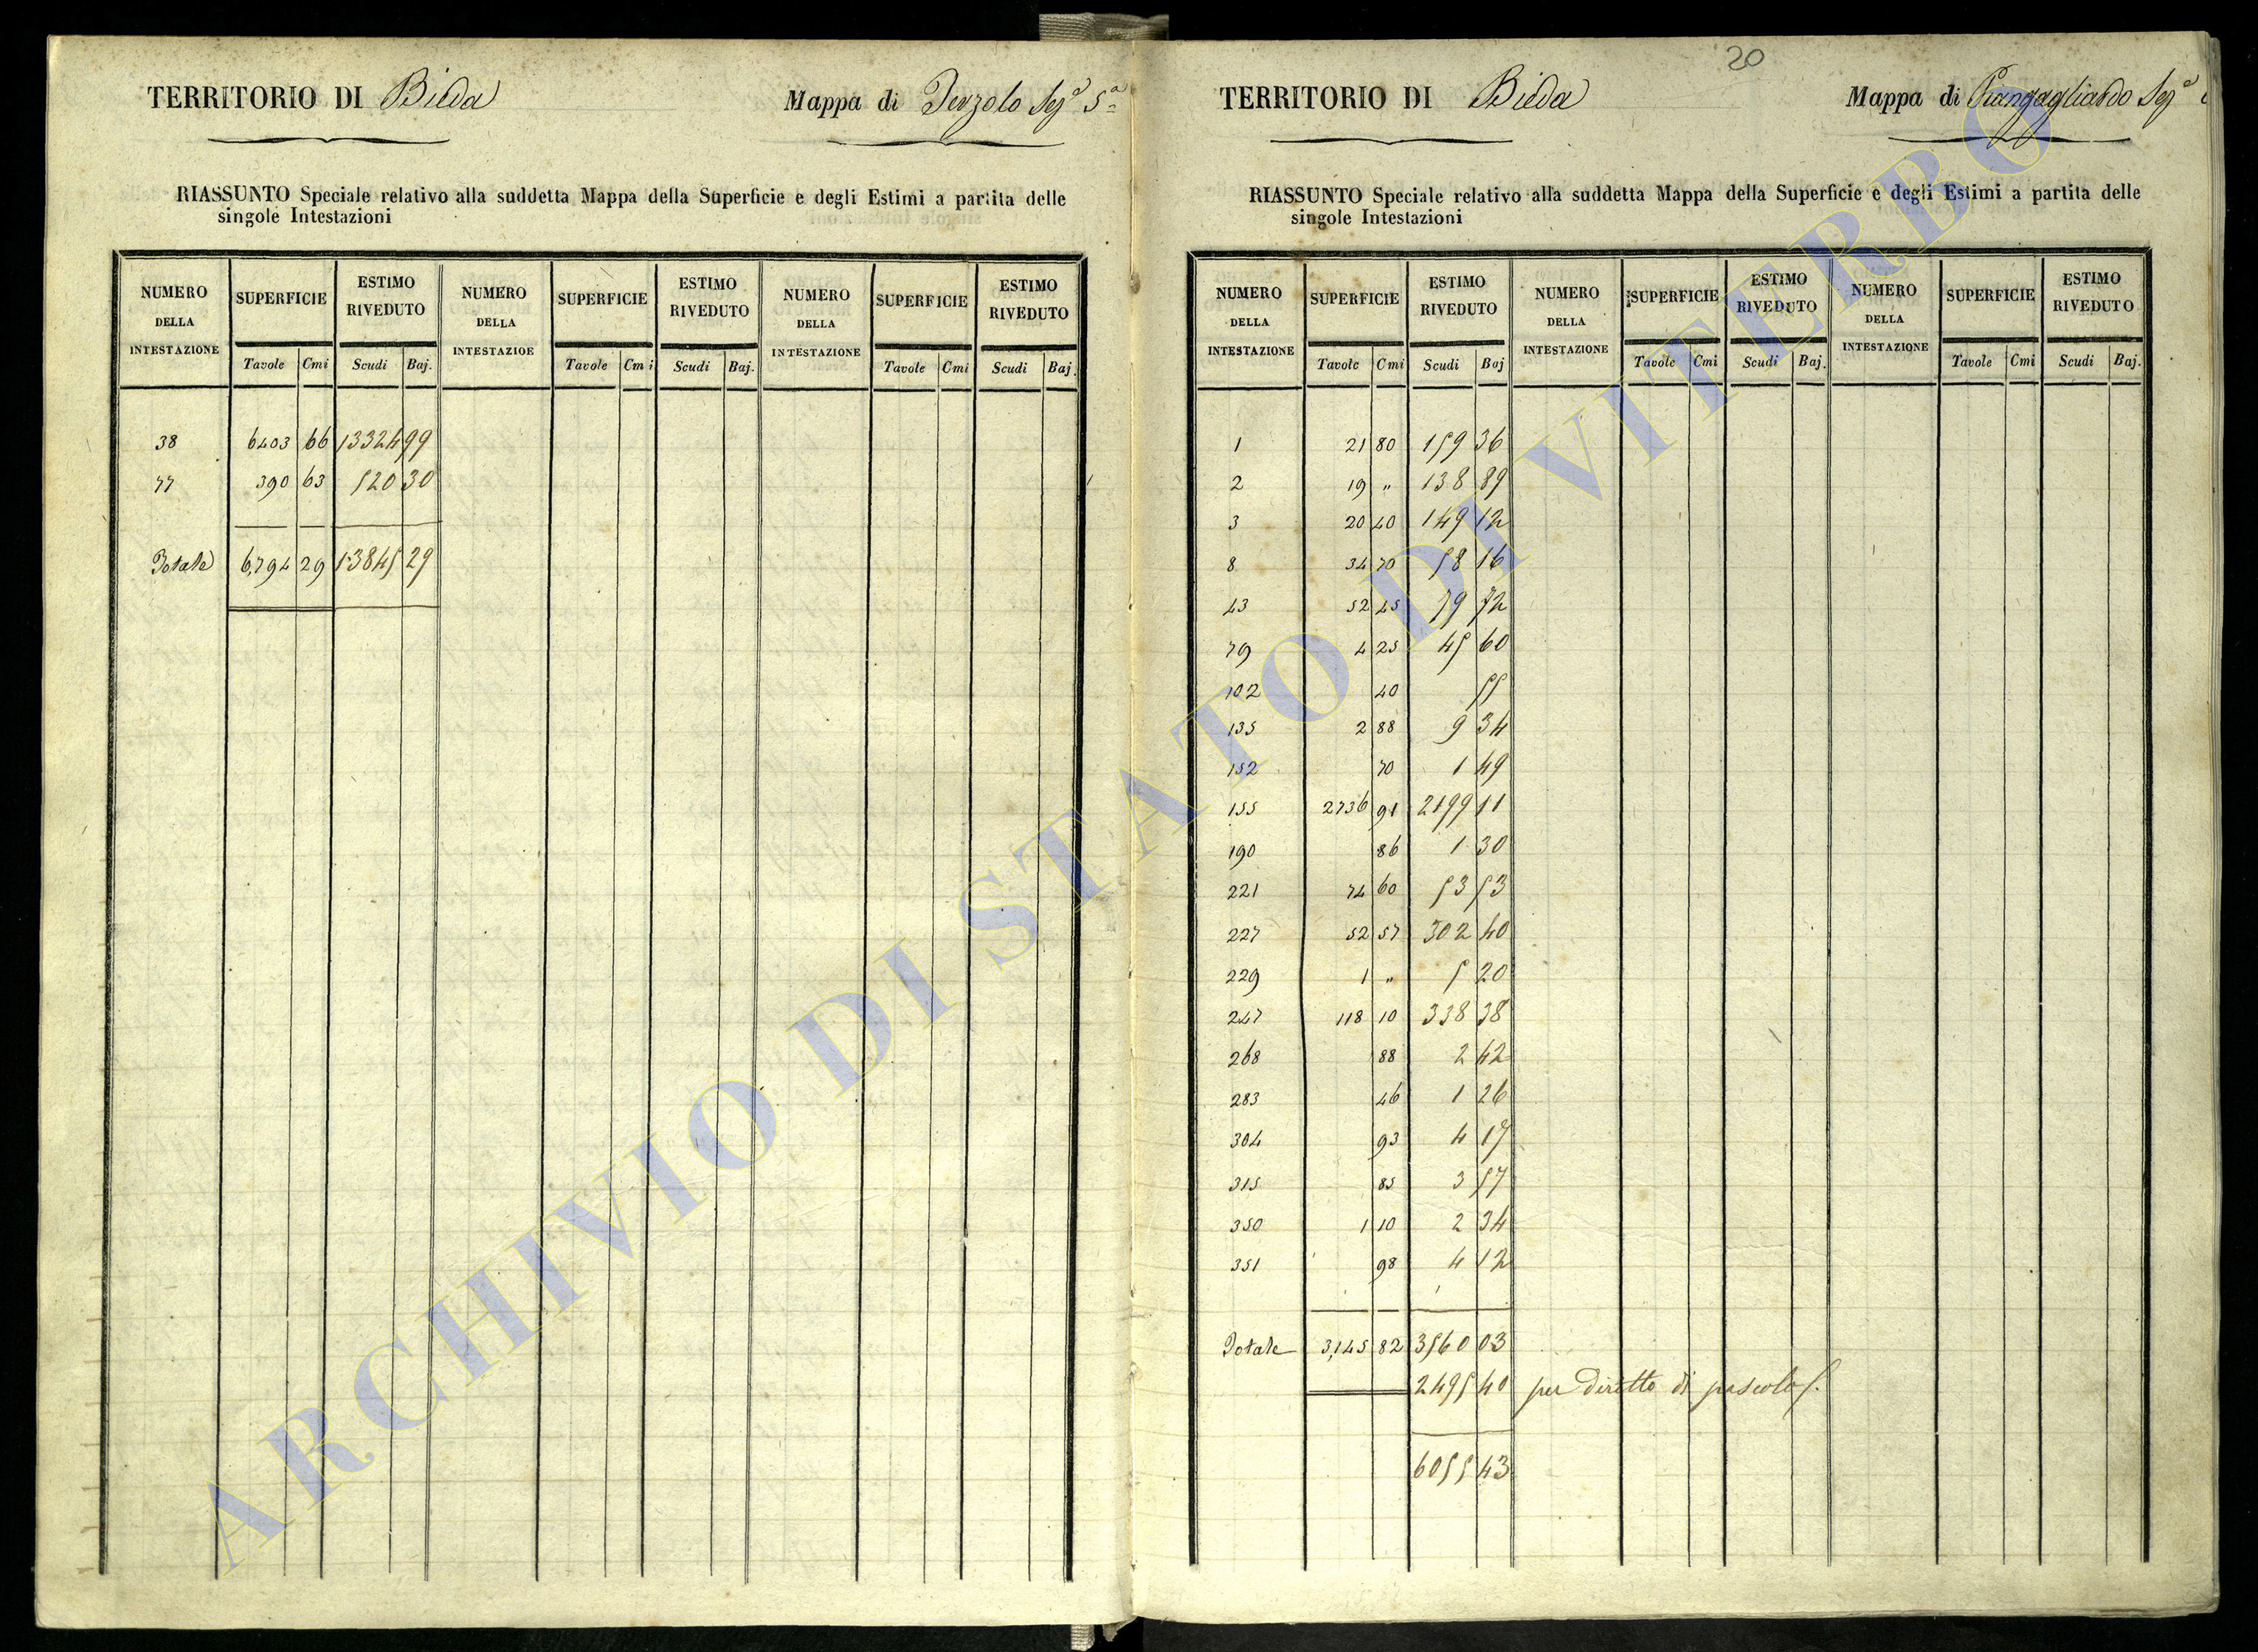 TERRITORIO DI Bieda
Mappa di Terzolo Segᵉ 5ª
RIASSUNTO Speciale relativo alla suddetta Mappa della Superficie e degli Estimi a partita delle
singole Intestazioni
NUMERO DELLA INTESTAZIONE SUPERFICIE ESTIMO RIVEDUTO NUMERO DELLA INTESTAZIOE SUPERFICIE ESTIMO RIVEDUTO NUMERO DELLA INTESTAZIONE SUPERFICIE ESTIMO RIVEDUTO
Tavole Cmi Scudi Baj. Tavole Cmi Scudi Baj. Tavole Cmi Scudi Baj.
38 6403 66 13324 99
77 390 63 520 30
Totale 6,794 29 13845 29
20
TERRITORIO DI Bieda
Mappa di Piangagliardo Segᵉ
RIASSUNTO Speciale relativo alla suddetta Mappa della Superficie e degli Estimi a partita delle
singole Intestazioni
NUMERO DELLA INTESTAZIONE SUPERFICIE ESTIMO RIVEDUTO NUMERO DELLA INTESTAZIONE SUPERFICIE ESTIMO RIVEDUTO NUMERO DELLA INTESTAZIONE SUPERFICIE ESTIMO RIVEDUTO
Tavole Cmi Scudi Baj Tavole Cmi Scudi Baj. Tavole Cmi Scudi Baj.
1 21 80 159 36
2 19 " 138 89
3 20 40 149 12
8 34 70 58 16
43 52 45 79 72
79 4 25 45 60
102 40 55
135 2 88 9 34
152 70 1 49
155 2736 91 2199 11
190 86 1 30
221 74 60 53 53
227 52 57 302 40
229 1 " 5 20
247 118 10 338 38
268 88 2 42
283 46 1 26
304 93 4 17
315 85 3 57
350 1 10 2 34
351 98 4 12
Totale 3,145 82 3560 03
2495 40 per diretto di pascolo f.
6055 43
ARCHIVIO DI STATO DI VITERBO